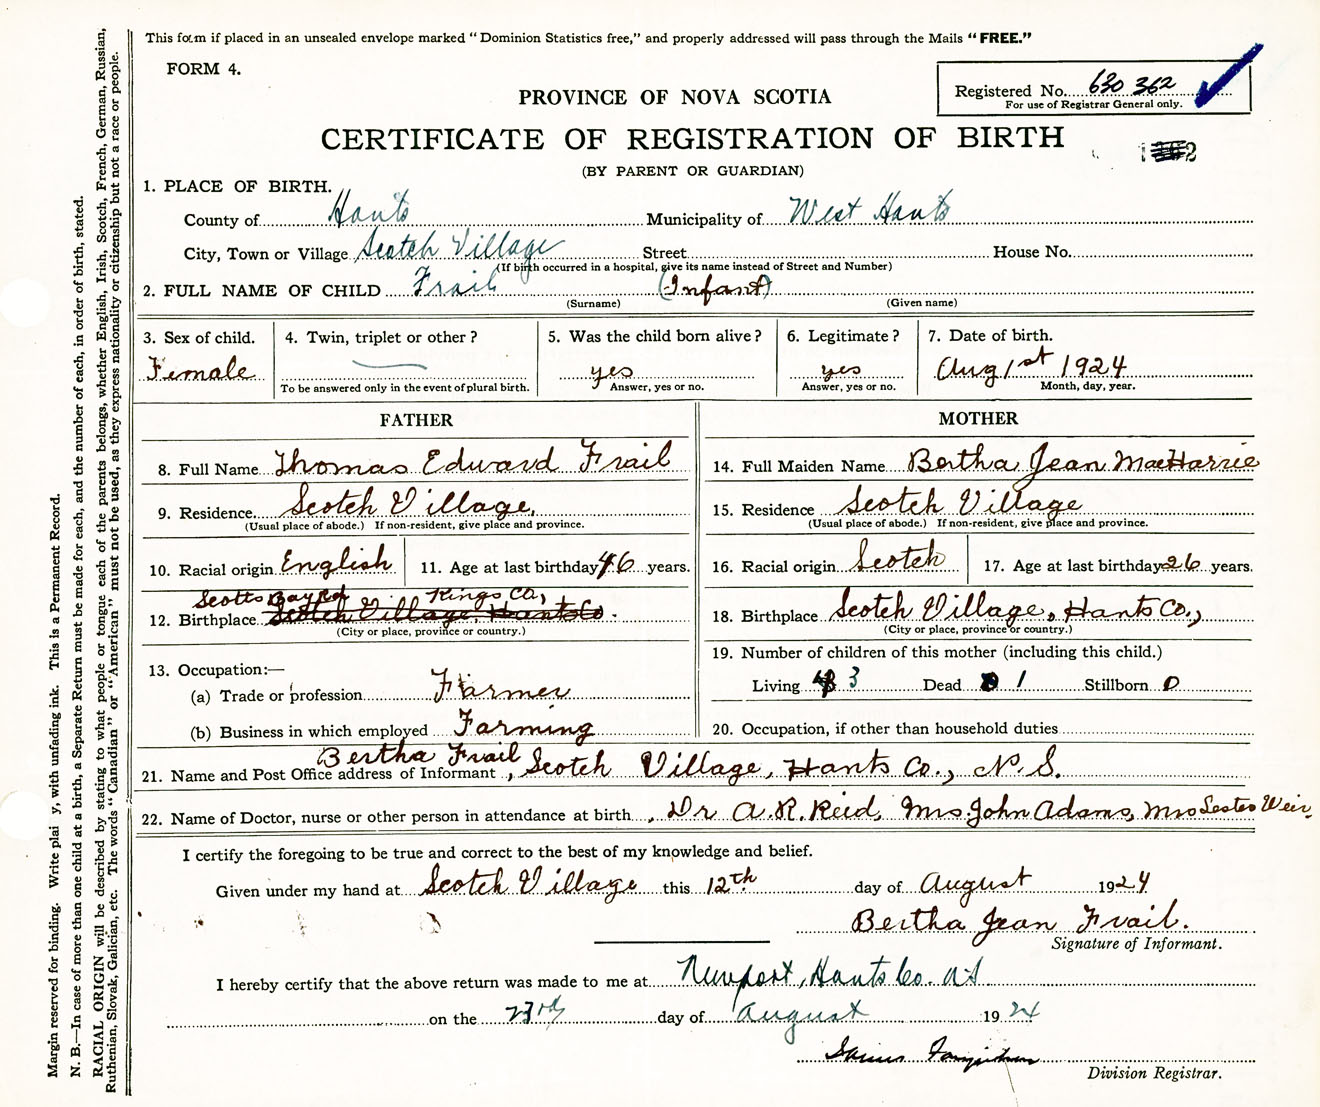 This form if placed in an unsealed envelope marked "Dominion Statistics free," and properly addressed will pass through the Mails "FREE."
FORM 4.
Registered No. 630 362
For use of Registrar General only.
PROVINCE OF NOVA SCOTIA
CERTIFICATE OF REGISTRATION OF BIRTH
(BY PARENT OR GUARDIAN)
1. PLACE OF BIRTH.
County of Hants Municipality of West Hants
City, Town or Village Scotch Village Street House No.
(If birth occurred in a hospital, give its name instead of Street and Number)
2. FULL NAME OF CHILD Frail (Infant)
(Surname) (Given name)
3. Sex of child. 4. Twin, triplet or other? 5. Was the child born alive? 6. Legitimate? 7. Date of birth.
Female yes yes Aug 1st 1924
To be answered only in the event of plural birth. Answer, yes or no. Answer, yes or no. Month, day, year.
FATHER MOTHER
8. Full Name Thomas Edward Frail 14. Full Maiden Name Bertha Jean MacHarrie
9. Residence Scotch Village, 15. Residence Scotch Village
(Usual place of abode.) If non-resident, give place and province. (Usual place of abode.) If non-resident, give place and province.
10. Racial origin English 11. Age at last birthday 46 years. 16. Racial origin Scotch 17. Age at last birthday 26 years.
Scotts Bay Rd Kings Co,
12. Birthplace Scotch Village, Hants Co. 18. Birthplace Scotch Village, Hants Co.,
(City or place, province or country.) (City or place, province or country.)
19. Number of children of this mother (including this child.)
13. Occupation:—
(a) Trade or profession Farmer Living 3 Dead 1 Stillborn 0
(b) Business in which employed Farming 20. Occupation, if other than household duties
21. Name and Post Office address of Informant Bertha Frail, Scotch Village, Hants Co., N.S.
22. Name of Doctor, nurse or other person in attendance at birth Dr A.R. Reid, Mrs. John Adams, Mrs Lester Weir,
I certify the foregoing to be true and correct to the best of my knowledge and belief.
Given under my hand at Scotch Village this 12th day of August 1924
Bertha Jean Frail.
Signature of Informant.
I hereby certify that the above return was made to me at Newport, Hants Co. N.S
on the 23rd day of August 1924
Division Registrar.
Margin reserved for binding. Write plai y, with unfading ink. This is a Permanent Record.
N. B.—In case of more than one child at a birth, a Separate Return must be made for each, and the number of each, in order of birth, stated.
RACIAL ORIGIN will be described by stating to what people or tongue each of the parents belongs, whether English, Irish, Scotch, French, German, Russian,
Ruthenian, Slovak, Galician, etc. The words "Canadian" or "American" must not be used, as they express nationality or citizenship but not a race or people.